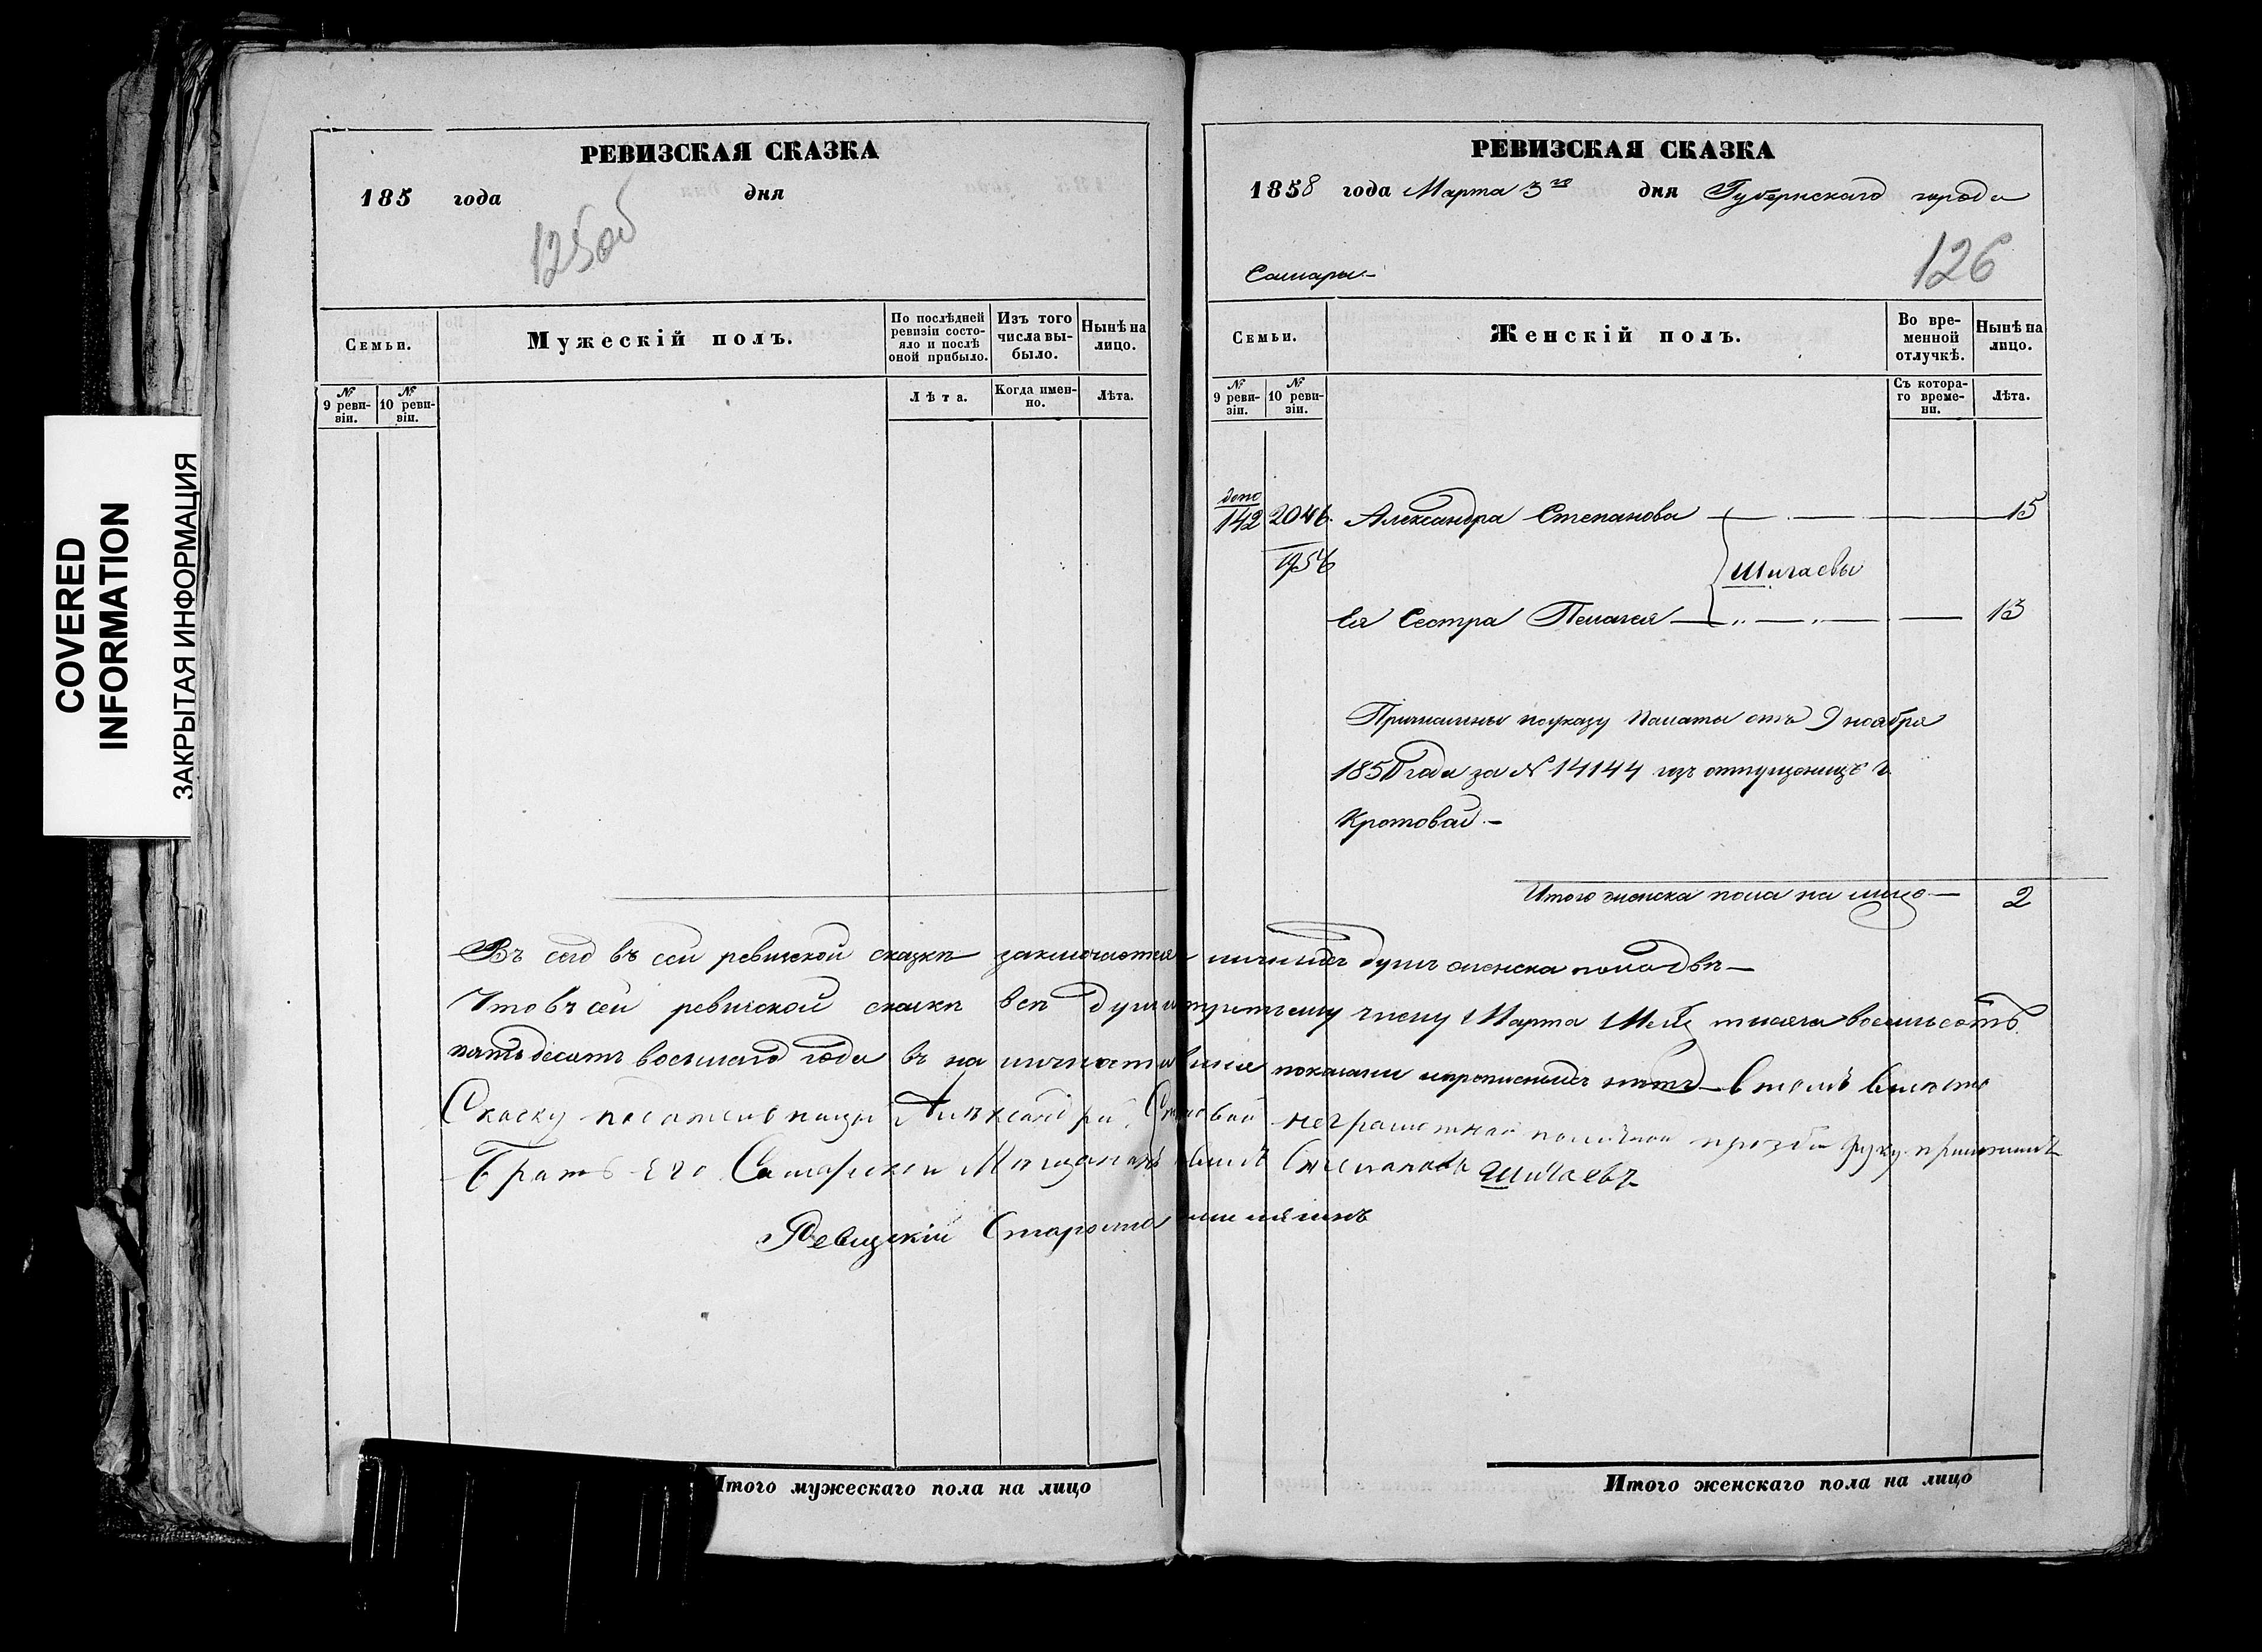 COVERED
INFORMATION
ЗАКРЫТАЯ ИНФОРМАЦИЯ
РЕВИЗСКАЯ СКАЗКА
185 года дня
125об
Семьи.
Мужескій полъ.
По послѣдней ревизіи состояло и послѣ оной прибыло.
Изъ того числа выбыло.
Нынѣ на лицо.
№ 9 ревизіи.
№ 10 ревизіи.
Лѣта.
Когда именно.
Лѣта.
Итого мужескаго пола на лицо
РЕВИЗСКАЯ СКАЗКА
1858 года Марта 3го дня Губернскаго города
Самары
126
Семьи.
Женскій полъ.
Во временной отлучкѣ.
Нынѣ на лицо.
№ 9 ревизіи.
№ 10 ревизіи.
Съ котораго времени.
Лѣта.
доп
142 2046 Александра Степанова 15
1956
Шигаевы
Ея Сестра Пелагея 13
Причислены по указу Палаты отъ 9 ноября
185 года за № 14144 изъ отпущениц г.
Кротовой
Итого женска пола на лицо 2
въ сей ревизской сказкѣ заключается душъ женска пола двѣ
Что въ сей ревизской сказкѣ всѣ души третьему числу Марта тысяча восемьсотъ
пятьдесятъ восьмаго года въ на личности показаны и прописныхъ нѣтъ в томъ вместо
неграмотной приложилъ
Братъ его Самарскій Мѣщанинъ Степановъ Шигаевъ
Ревизскій Староста
Итого женскаго пола на лицо